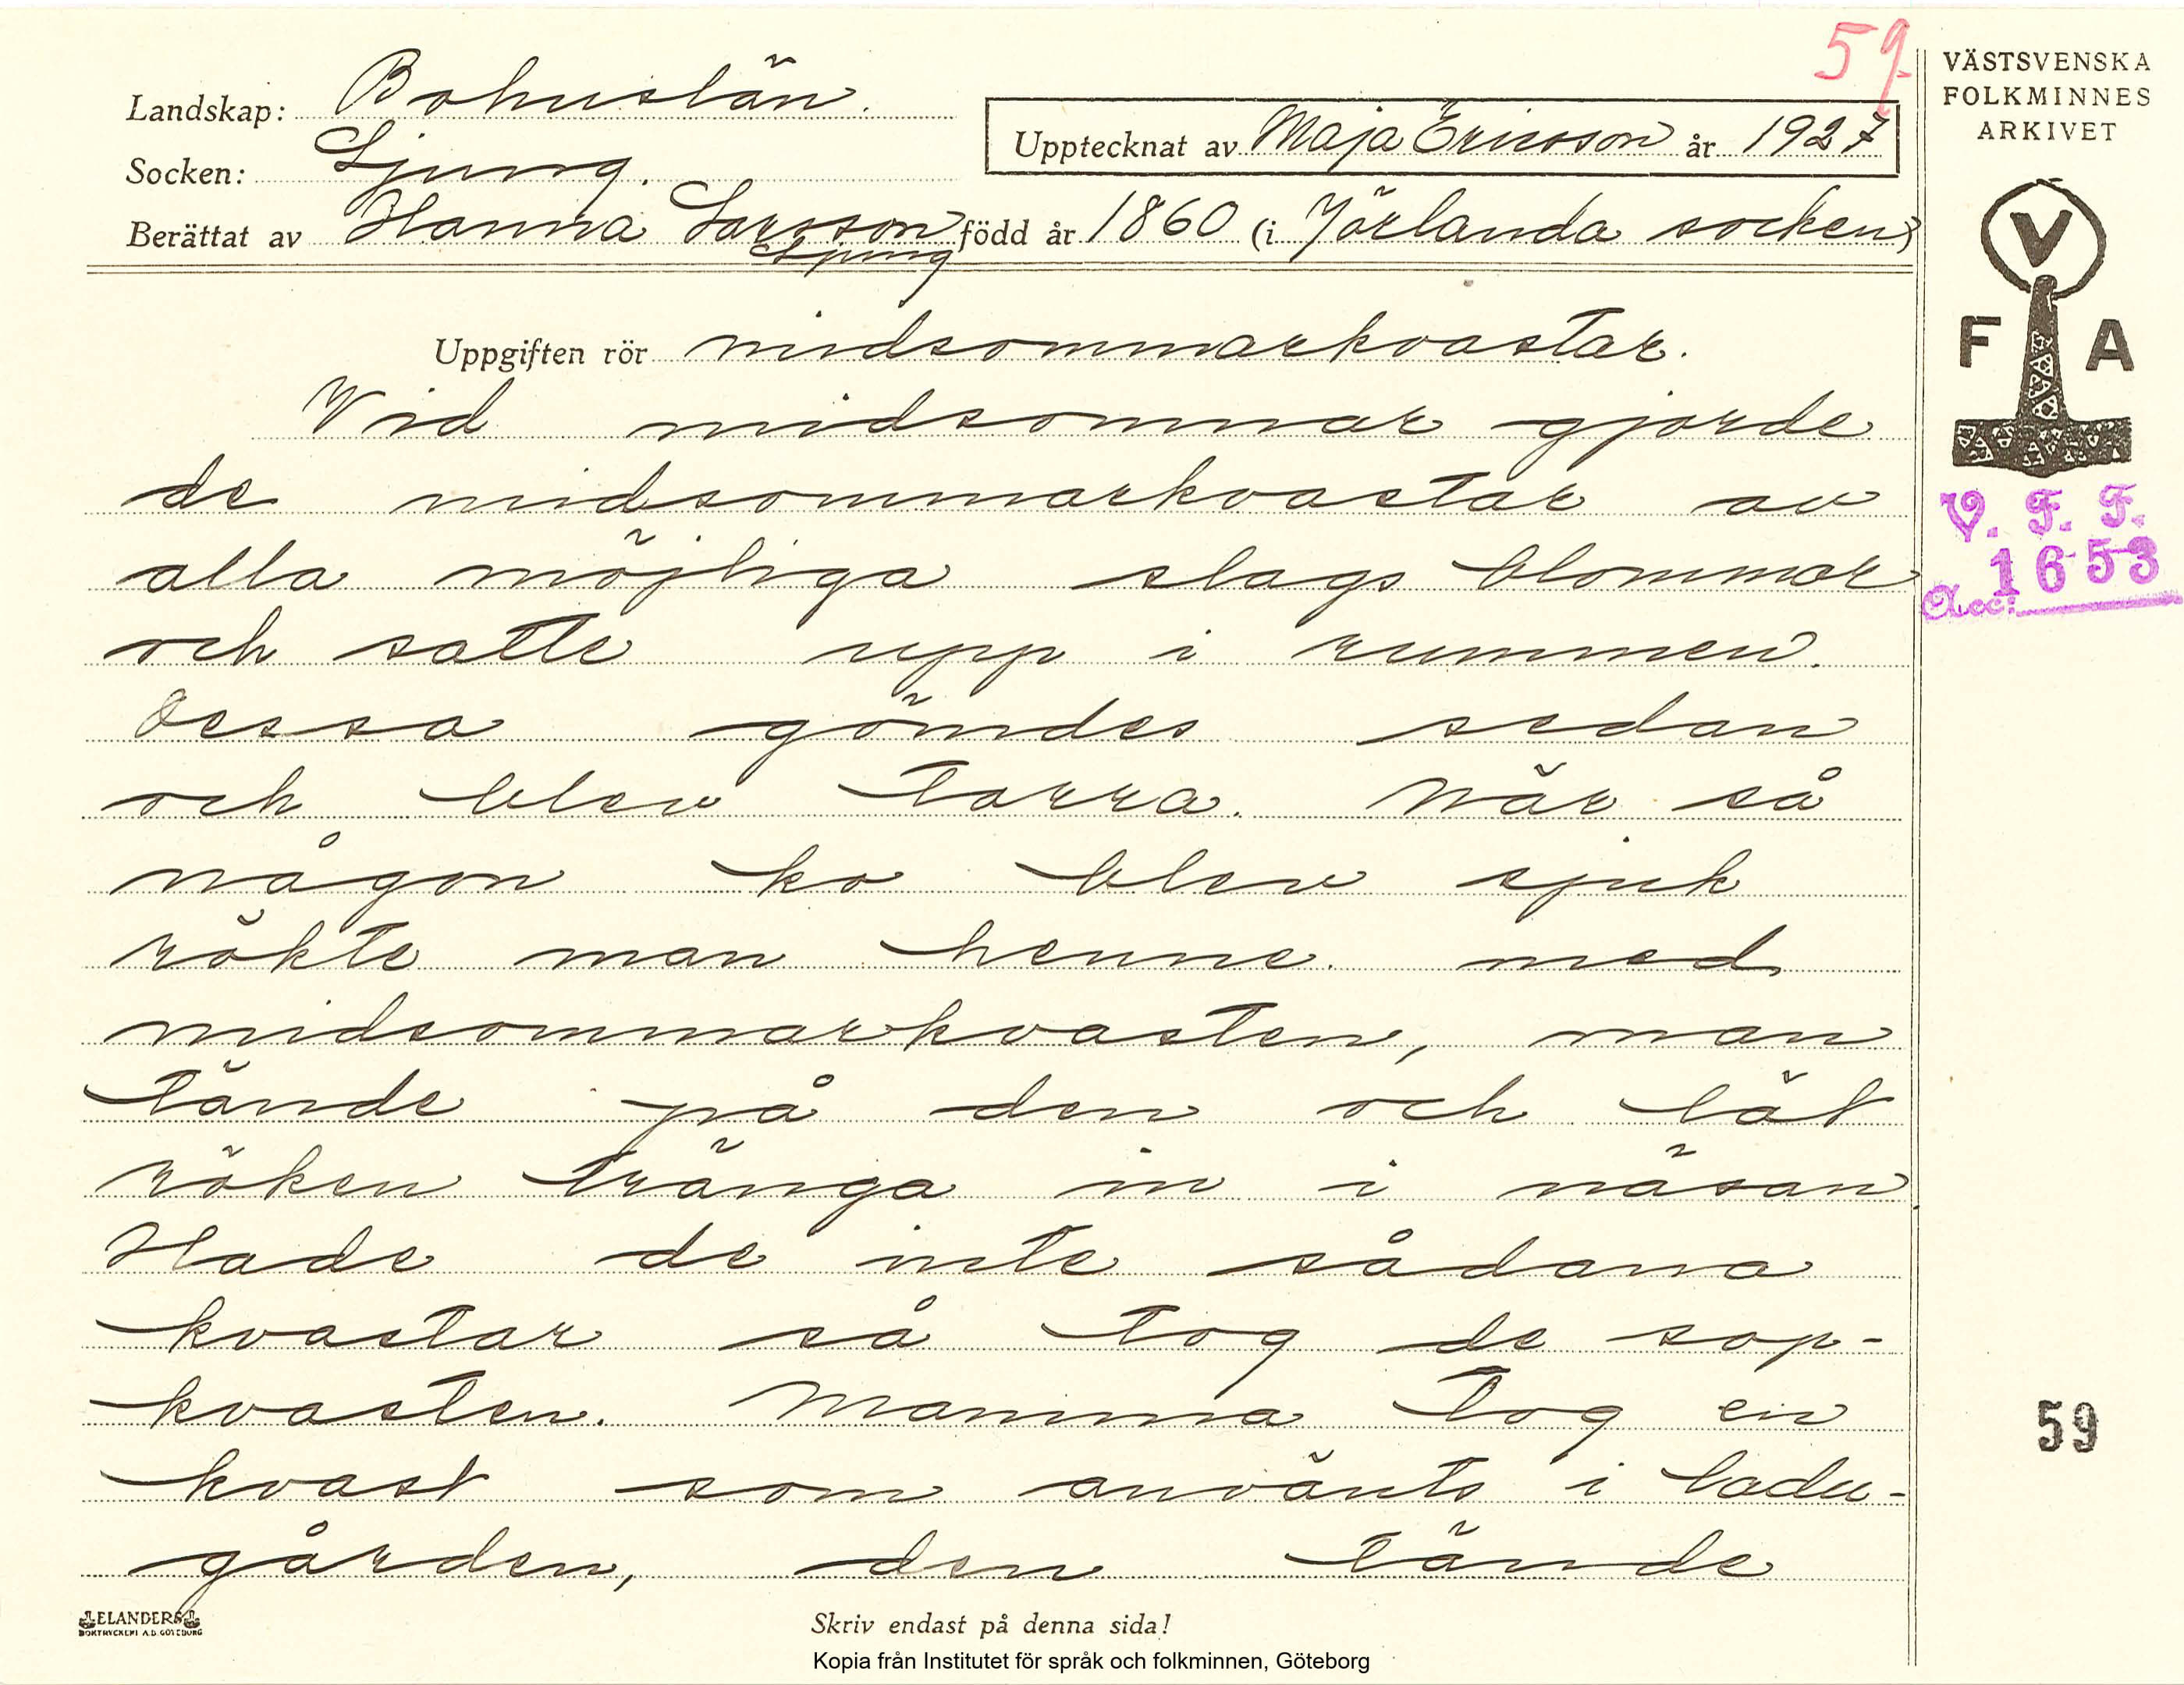 59
Landskap: Bohuslän.
Socken: Ljung.
Upptecknat av Maja Ericsson år 1927
Berättat av Hanna Larsson född år 1860 (i Jörlanda socken)
Ljung
VÄSTSVENSKA
FOLKMINNES
ARKIVET
V
F A
V. F. F.
Acc: 1653
Uppgiften rör midsommarkvastar.
Vid midsommar gjorde
de midsommarkvastar av
alla möjliga slags blommor
och satte upp i rummen.
Dessa gömdes sedan
och blev torra. När så
någon ko blev sjuk
rökte man henne med
midsommarkvasten, man
tände på den och lät
röken tränga in i näsan.
Hade de inte sådana
kvastar så tog de sop-
kvasten. Mamma tog en
kvast som använts i ladu-
gården, den tände
59
ELANDERS
BOKTRYCKERI A.B. GÖTEBORG
Skriv endast på denna sida!
Kopia från Institutet för språk och folkminnen, Göteborg